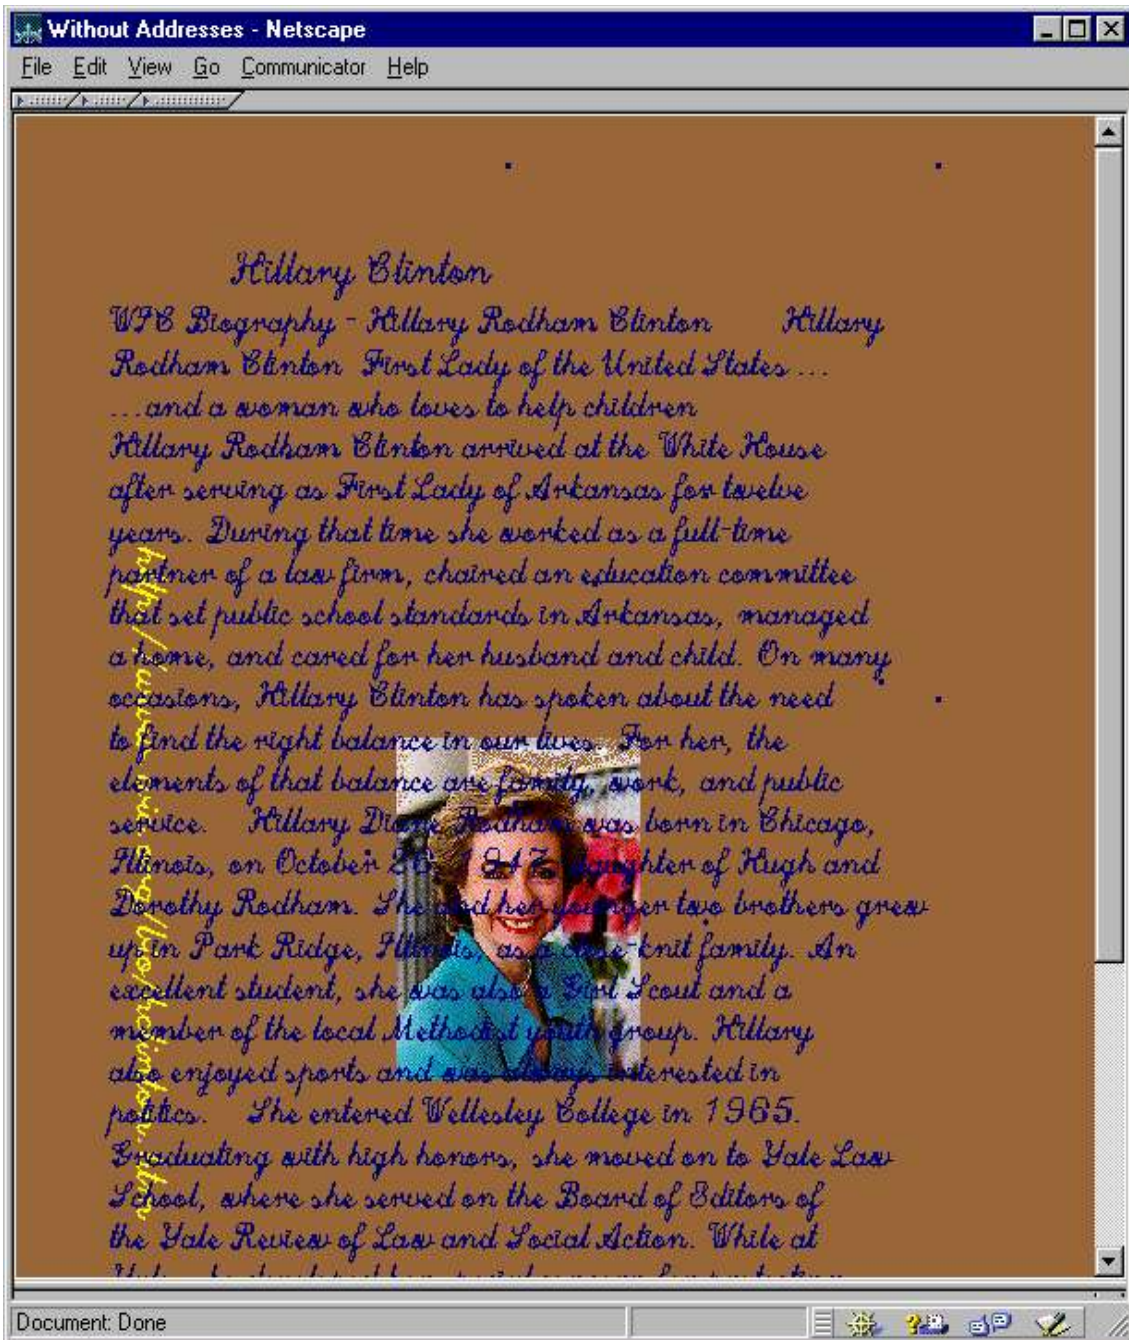 Without Addresses - Netscape
File Edit View Go Communicator Help
Hillary Clinton
WIC Biography - Hillary Rodham Clinton Hillary
Rodham Clinton First Lady of the United States ...
...and a woman who loves to help children
Hillary Rodham Clinton arrived at the White House
after serving as First Lady of Arkansas for twelve
years. During that time she worked as a full-time
partner of a law firm, chaired an education committee
that set public school standards in Arkansas, managed
a home, and cared for her husband and child. On many
occasions, Hillary Clinton has spoken about the need
to find the right balance in our lives. For her, the
elements of that balance are family, work, and public
service. Hillary Diane Rodham was born in Chicago,
Illinois, on October 26, 1947, daughter of Hugh and
Dorothy Rodham. She and her younger two brothers grew
up in Park Ridge, Illinois, as a close-knit family. An
excellent student, she was also a Girl Scout and a
member of the local Methodist youth group. Hillary
also enjoyed sports and was always interested in
politics. She entered Wellesley College in 1965.
Graduating with high honors, she moved on to Yale Law
School, where she served on the Board of Editors of
the Yale Review of Law and Social Action. While at
Document: Done